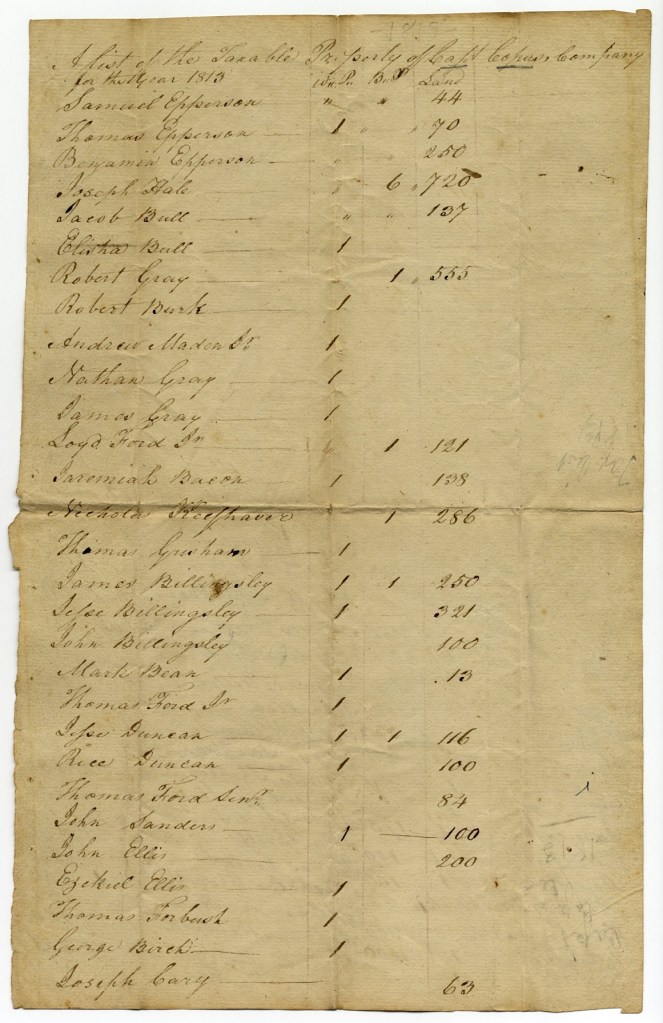 A list of the Taxable Property of Capt Copass Company
for the Year 1813 Wh. Po Bl. Po Land
Samuel Epperson " " 44
Thomas Epperson 1 " " 70
Benjamin Epperson " 250
Joseph Hale " 6 " 720
Jacob Bull " " 137
Elisha Bull 1
Robert Gray 1 " 555
Robert Burk 1
Andrew Maden Jr 1
Nathan Gray 1
James Gray 1
Loyd Ford Jr " 1 121
Jaremiah Bacon 1 138
Nicholas Keefhaver 1 286
Thomas Grisham 1
James Billingsley 1 1 250
Jesse Billingsley 1 321
John Billingsley 100
Mark Bean 1 13
Thomas Ford Jr 1
Jesse Duncan 1 1 116
Rice Duncan 1 100
Thomas Ford Senr 84
John Sanders 1 100
John Ellis 200
Ezekiel Ellis 1
Thomas Forbush 1
George Birch 1
Joseph Cary 63